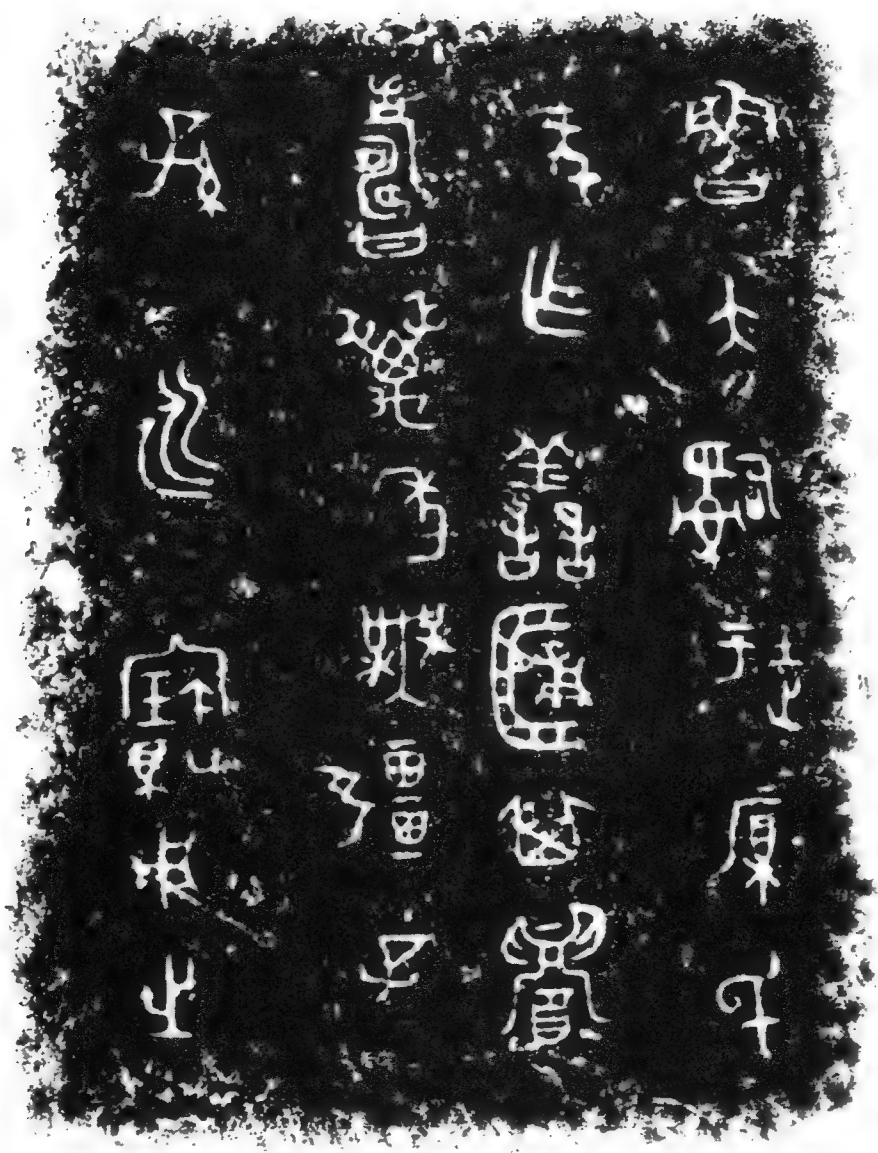 魯大嗣徒厚氏
元乍譱簠其眉
壽萬年無疆子
孫永寶用之